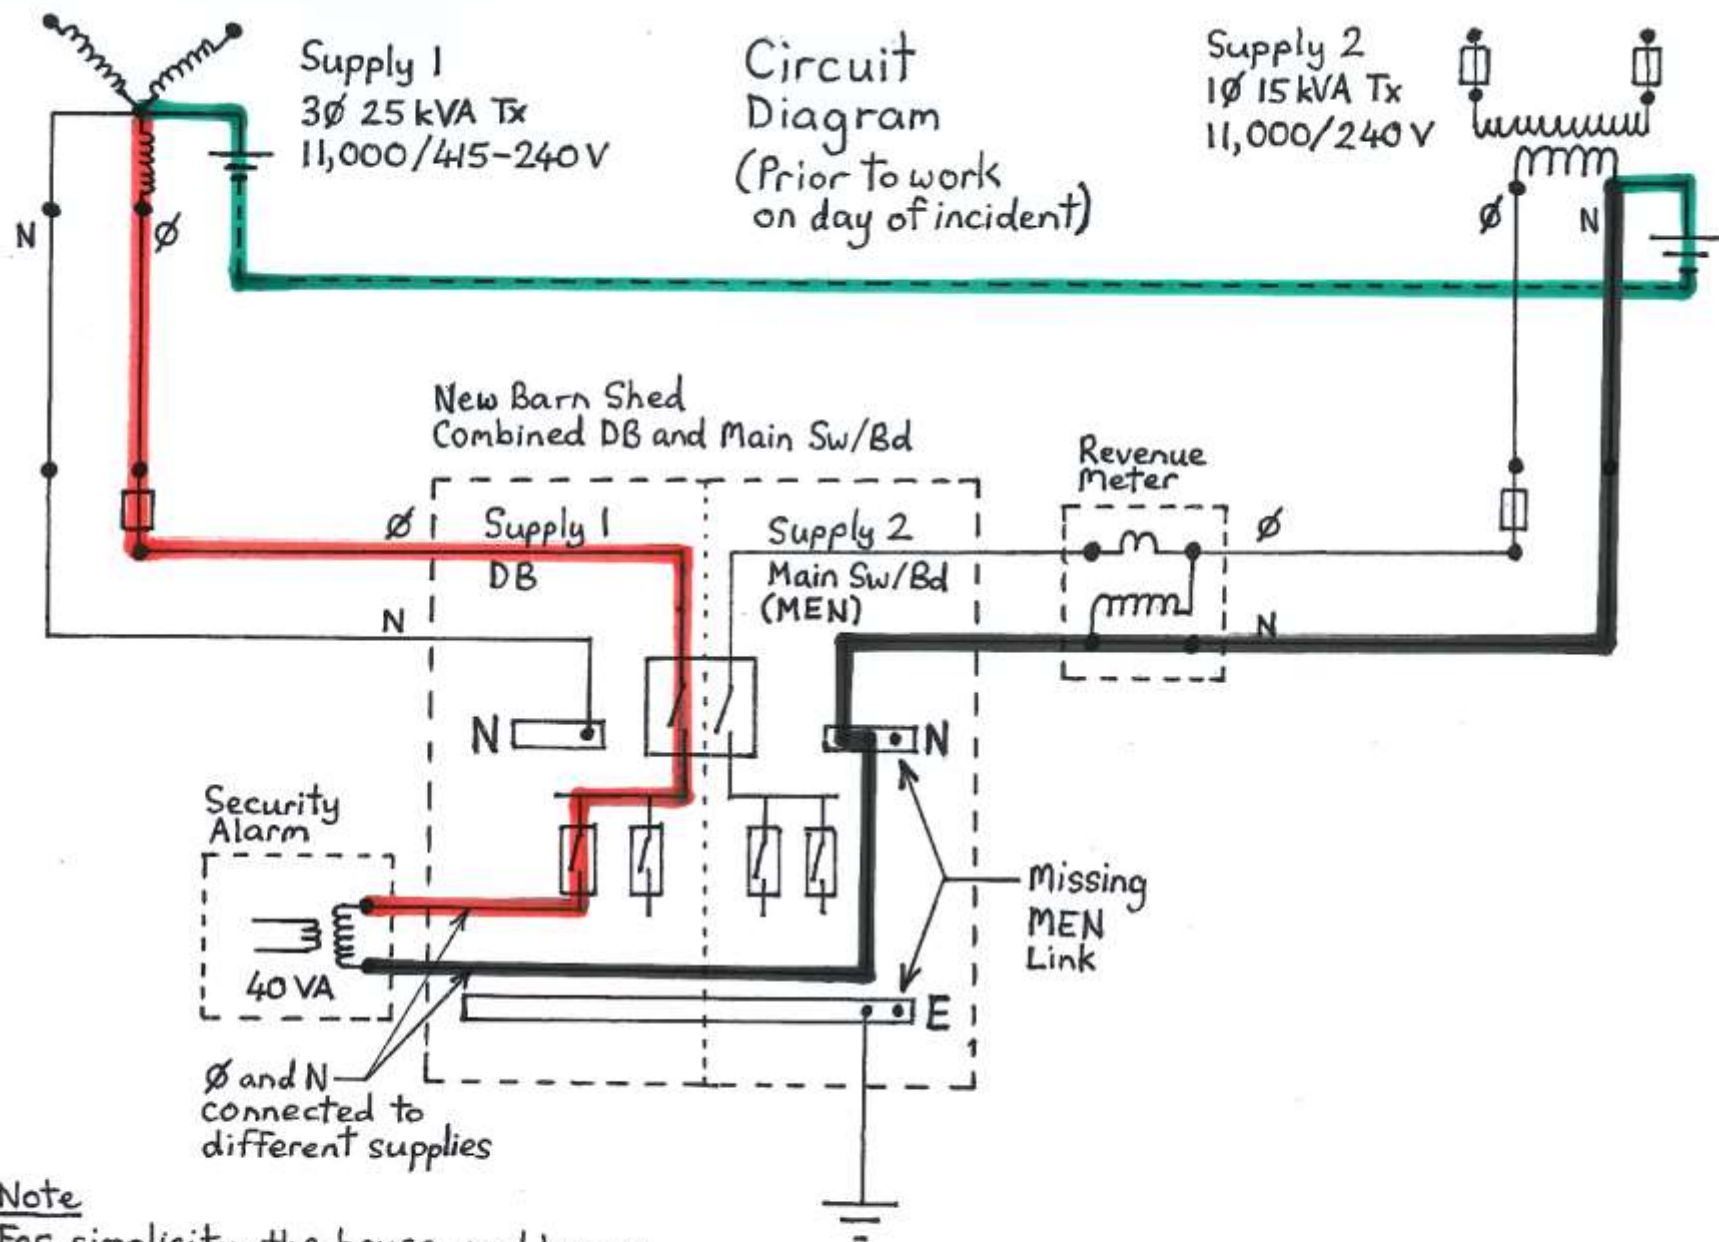 Supply 1
3Ø 25 kVA Tx
11,000/415-240V
Circuit
Diagram
(Prior to work
on day of incident)
Supply 2
1Ø 15 kVA Tx
11,000/240V
N
Ø
Ø
N
New Barn Shed
Combined DB and Main Sw/Bd
Revenue
Meter
Ø
Supply 1
DB
Supply 2
Main Sw/Bd
(MEN)
Ø
N
N
N
N
Security
Alarm
40VA
Missing
MEN
Link
E
Ø and N
connected to
different supplies
Note